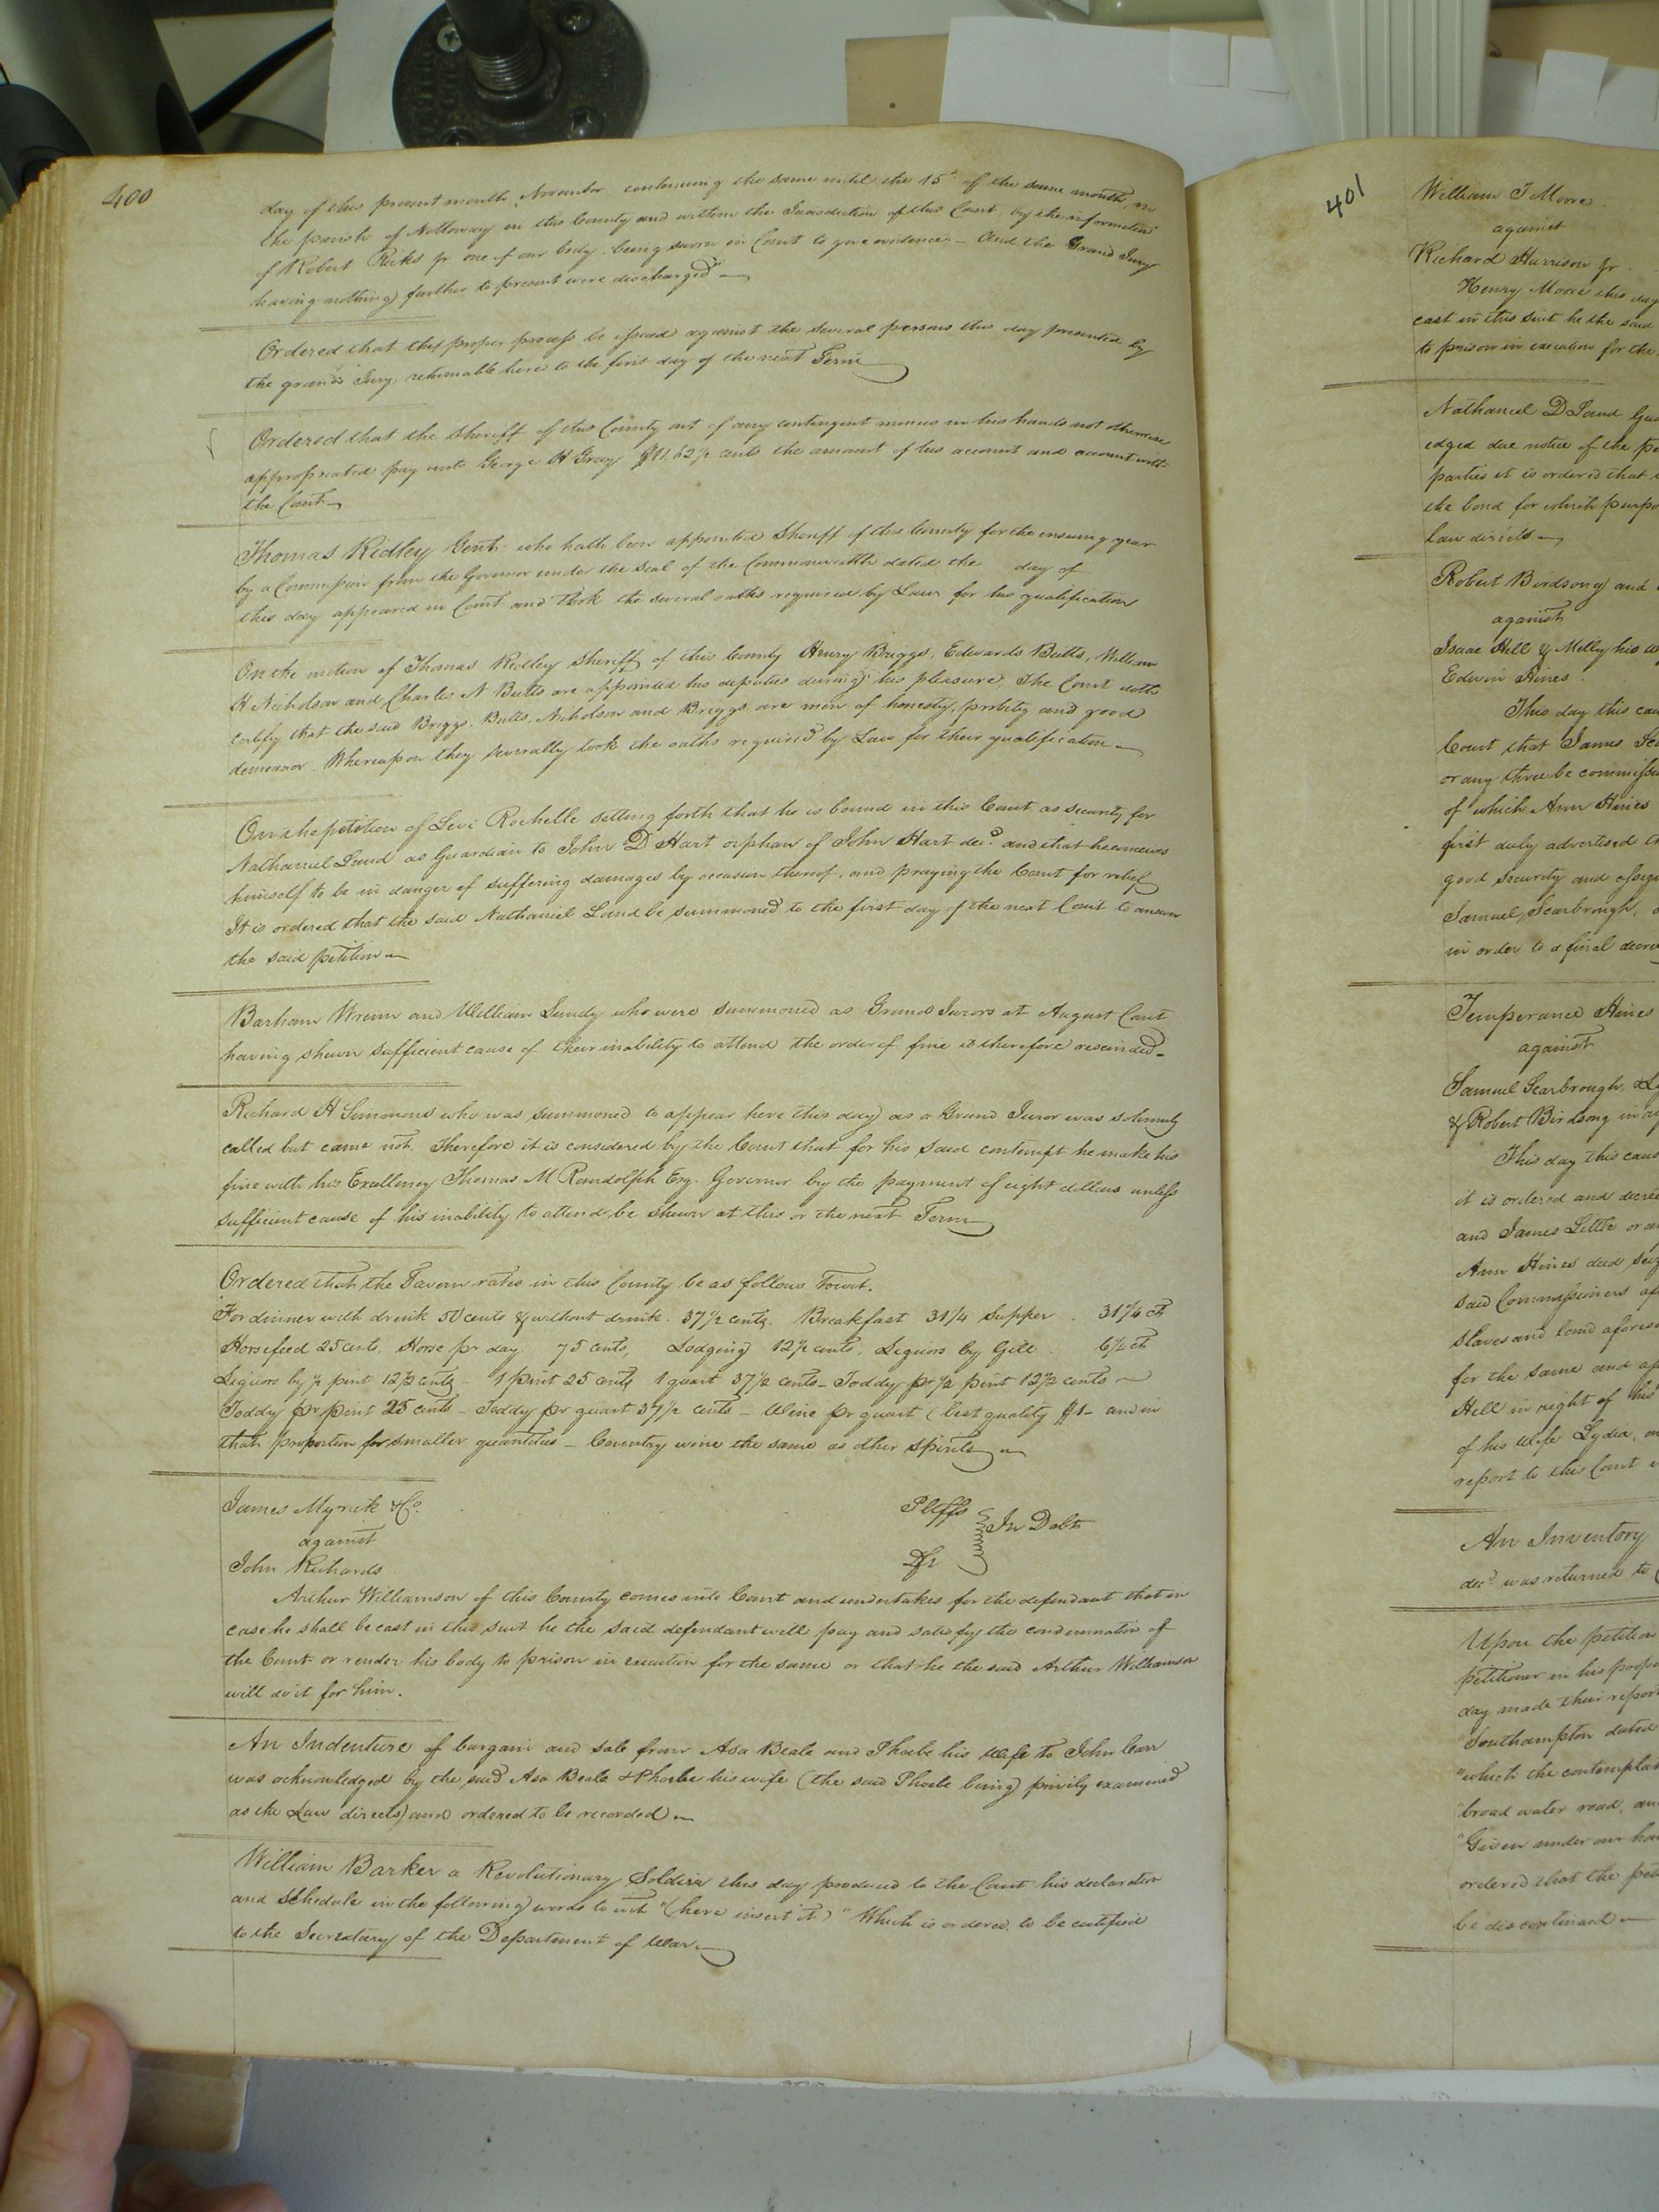 400
day of this present month November continuing the same until the 15th of the same month, in
the parish of Nottoway in this County and within the Jurisdiction of this Court, by the information
of Robert Ricks jr. one of our body, being sworn in Court to give evidence - And the Grand Jury
having nothing further to present were discharged
Ordered that this proper process be issued against the several persons this day presented by
the grand Jury, returnable here to the first day of the next Term
Ordered that the Sheriff of this County out of any contingent monies in his hands not otherwise
appropriated pay unto George H Gray $11.62½ cents the amount of his account and account with
the Court
Thomas Ridley Gent: who hath been appointed Sheriff of this County for the ensuing year
by a Commission from the Governor under the seal of the Commonwealth dated the day of
this day appeared in Court and took the several oaths required by Law for his qualification
On the motion of Thomas Ridley Sheriff of this County Henry Briggs, Edwards Butts, William
H Nicholson and Charles N Butts are appointed his deputies during his pleasure. The Court doth
certify that the said Briggs, Butts, Nicholson and Briggs are men of honesty, probity and good
demeanor. Whereupon they severally took the oaths required by Law for their qualification
On the petition of Levi Rochelle setting forth that he is bound in this Court as security for
Nathaniel Land as Guardian to John D Hart orphan of John Hart decd. and that he conceives
himself to be in danger of suffering damages by occasion thereof, and praying the Court for relief
It is ordered that the said Nathaniel Land be summoned to the first day of the next Court to answer
the said petition
Barham Wrenn and William Lundy who were summoned as Grand Jurors at August Court
having shewn sufficient cause of their inability to attend the order of fine is therefore rescinded -
Richard H Simmons who was summoned to appear here this day as a Grand Juror was solemnly
called but came not. Therefore it is considered by the Court that for his said contempt he make his
fine with his Excellency Thomas M Randolph Esq. Governor by the payment of eight dollars unless
sufficient cause of his inability to attend be shewn at this or the next Term
Ordered that the Tavern rates in this County be as follows Towit.
For dinner with drink 50 cents & without drink. 37½ cents. Breakfast 31¼ Supper . 31¼ ct
Horsefeed 25 cents, Horse pr day 75 cents, Lodging 12½ cents, Liquors by Gill . 6½ ct
Liquors by ½ pint 12½ cents - 1 pint 25 cents 1 quart 37½ cents - Toddy pr ½ pint 12½ cents
Toddy pr pint 25 cents - Toddy pr quart 37½ cents - Wine pr quart (best quality $1 - and in
that proportion for smaller quantities - Country wine the same as other spirits
James Myrick & Co. Pltffs
against In Debt
John Richards Dft
Arthur Williamson of this County comes into Court and undertakes for the defendant that in
case he shall be cast in this suit he the said defendant will pay and satisfy the condemnation of
the Court or render his body to prison in execution for the same or that he the said Arthur Williamson
will do it for him.
An Indenture of bargain and sale from Asa Beale and Phoebe his Wife to John Carr
was acknowledged by the said Asa Beale & Phoebe his wife (the said Phoebe being) privily examined
as the Law directs) and ordered to be recorded
William Barker a Revolutionary Soldier this day produced to the Court his declaration
and schedule in the following words to wit "(here insert it)" Which is ordered to be certified
to the Secretary of the Department of War
401
William T Moore
against
Richard Harrison jr
Henry Moore this day
cast in this suit he the said
to prison in execution for the
Nathaniel D Land
edged due notice of the
parties it is ordered that
the bond for which
Law directs
Robert Birdsong and
against
Isaac Hill & Milly his
Edwin Hines
This day this
Court that James
or any three be
of which Ann Hines
first duly advertised
good security and
Samuel Scarbrough,
in order to a final
Temperance Hines
against
Samuel Scarbrough, &
& Robert Birdsong in
This day this
it is ordered and
and James Little or
Ann Hines decd
said Commissioners
slaves and land
for the same and
Hill in right of his
of his Wife Lydia,
report to this Court
An Inventory
decd. was returned to
Upon the petition
petitioner in his
day made their
"Southampton dated
"which the
"broad water road,
"Given under our
ordered that the
be discontinued